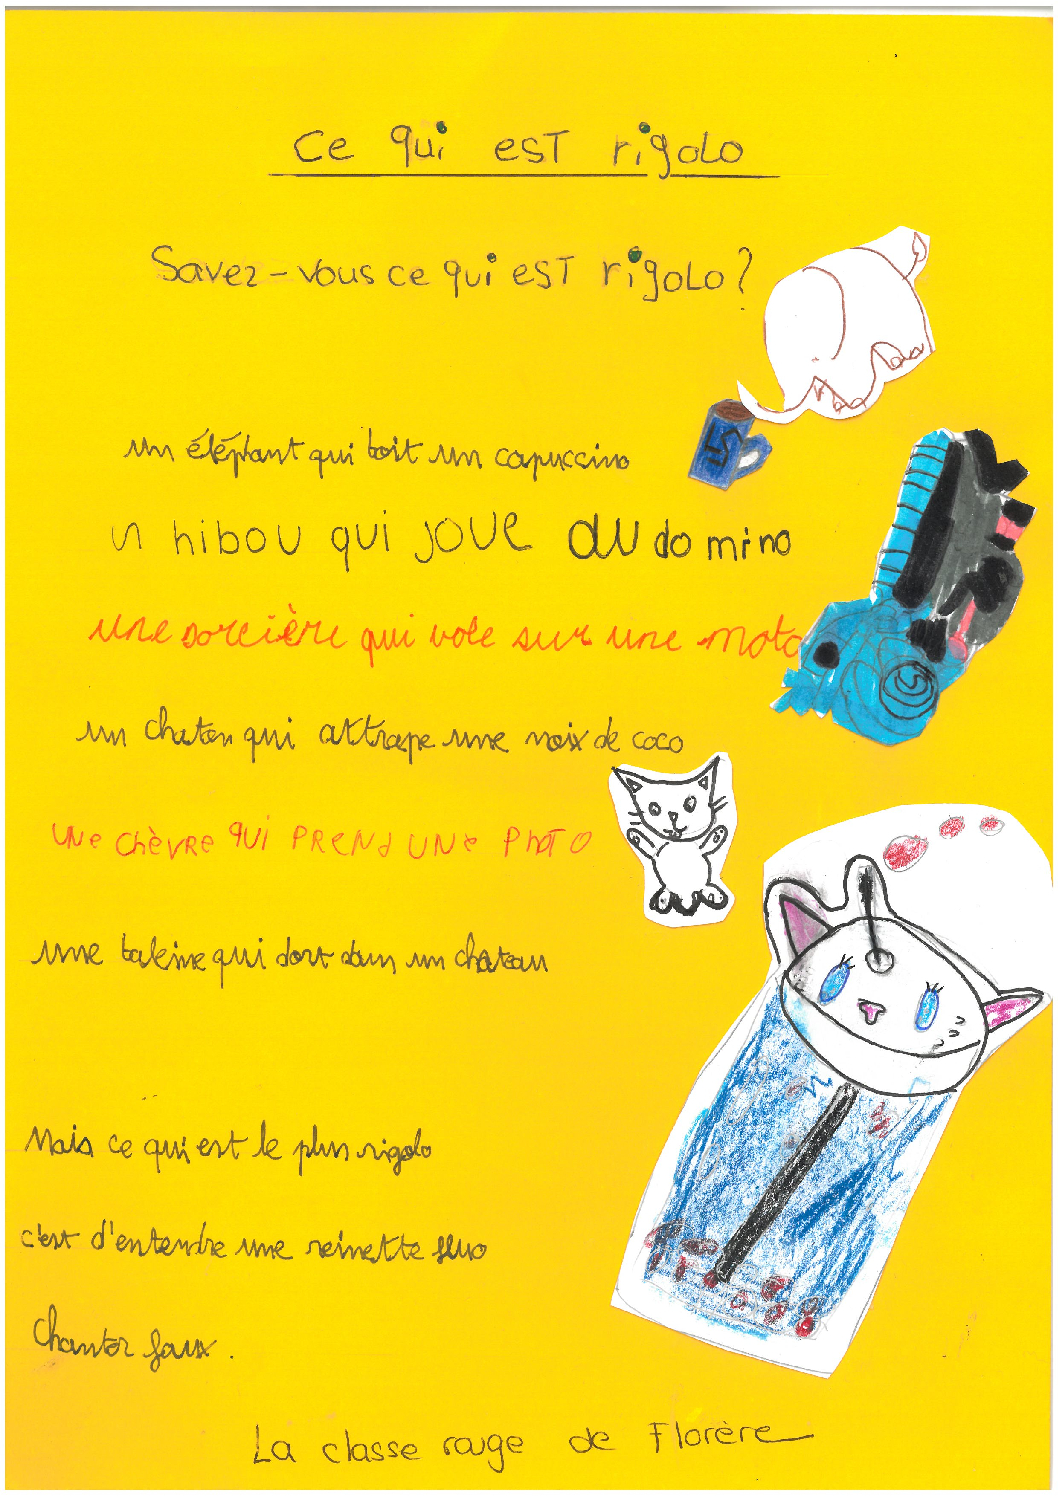 Ce qui est rigolo
Savez-vous ce qui est rigolo?
un éléphant qui boit un capuccino
un hibou qui joue au domino
une sorcière qui vole sur une moto
un chaton qui attrape une noix de coco
une chèvre qui prend une photo
une baleine qui dort dans un chateau
Mais ce qui est le plus rigolo
c'est d'entendre une reinette fluo
chanter faux.
La classe rouge de Florère